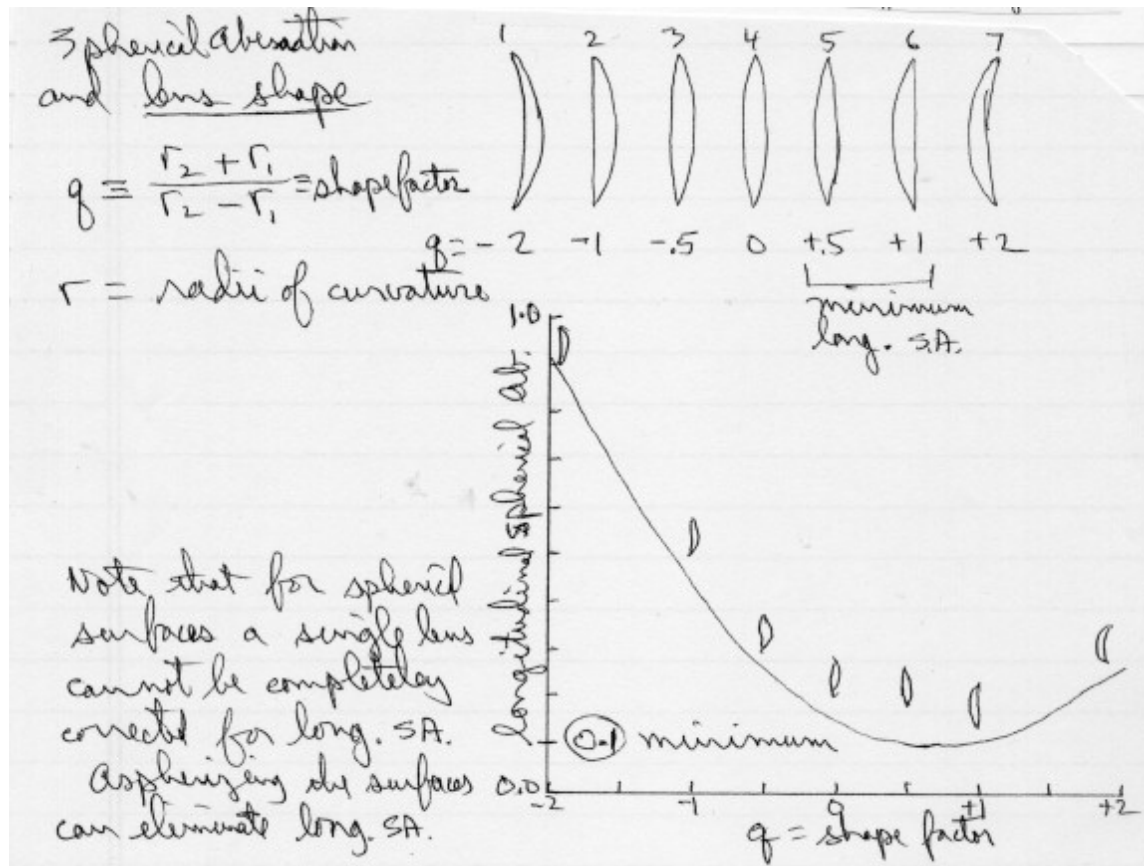 Spherical Aberration
and lens shape
q = r₂ + r₁ / r₂ - r₁ = shape factor
r = radii of curvature
1 2 3 4 5 6 7
q = -2 -1 -.5 0 +.5 +1 +2
minimum
long. SA.
1.0
Longitudinal Spherical Ab.
0.1 minimum
0.0
-2 -1 0 +1 +2
q = shape factor
Note that for spherical
surfaces a single lens
cannot be completely
corrected for long. SA.
Aspherizing the surfaces
can eliminate long. SA.